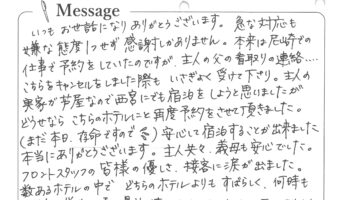 Message
いつもお世話になりありがとうございます。急な対応も
嫌な態度1つせず感謝しかありません。本来は尼崎での
仕事で予約をしていたのですが、主人の父の看取りの連絡....
こちらをキャンセルをしました際も いさぎよく受けて下り。主人の
実家が芦屋なので西宮にでも宿泊をしようと思いましたが
どうせなら こちらのホテルにと再度予約をさせて頂きました。
(まだ本日、存命ですので)安心して宿泊することが出来ました
本当にありがとうございます。主人共々、義母も安心でした。
フロントスタッフの皆様の優しさ、接客に涙が出ました。
数あるホテルの中で どちらのホテルよりもすばらしく、何時も